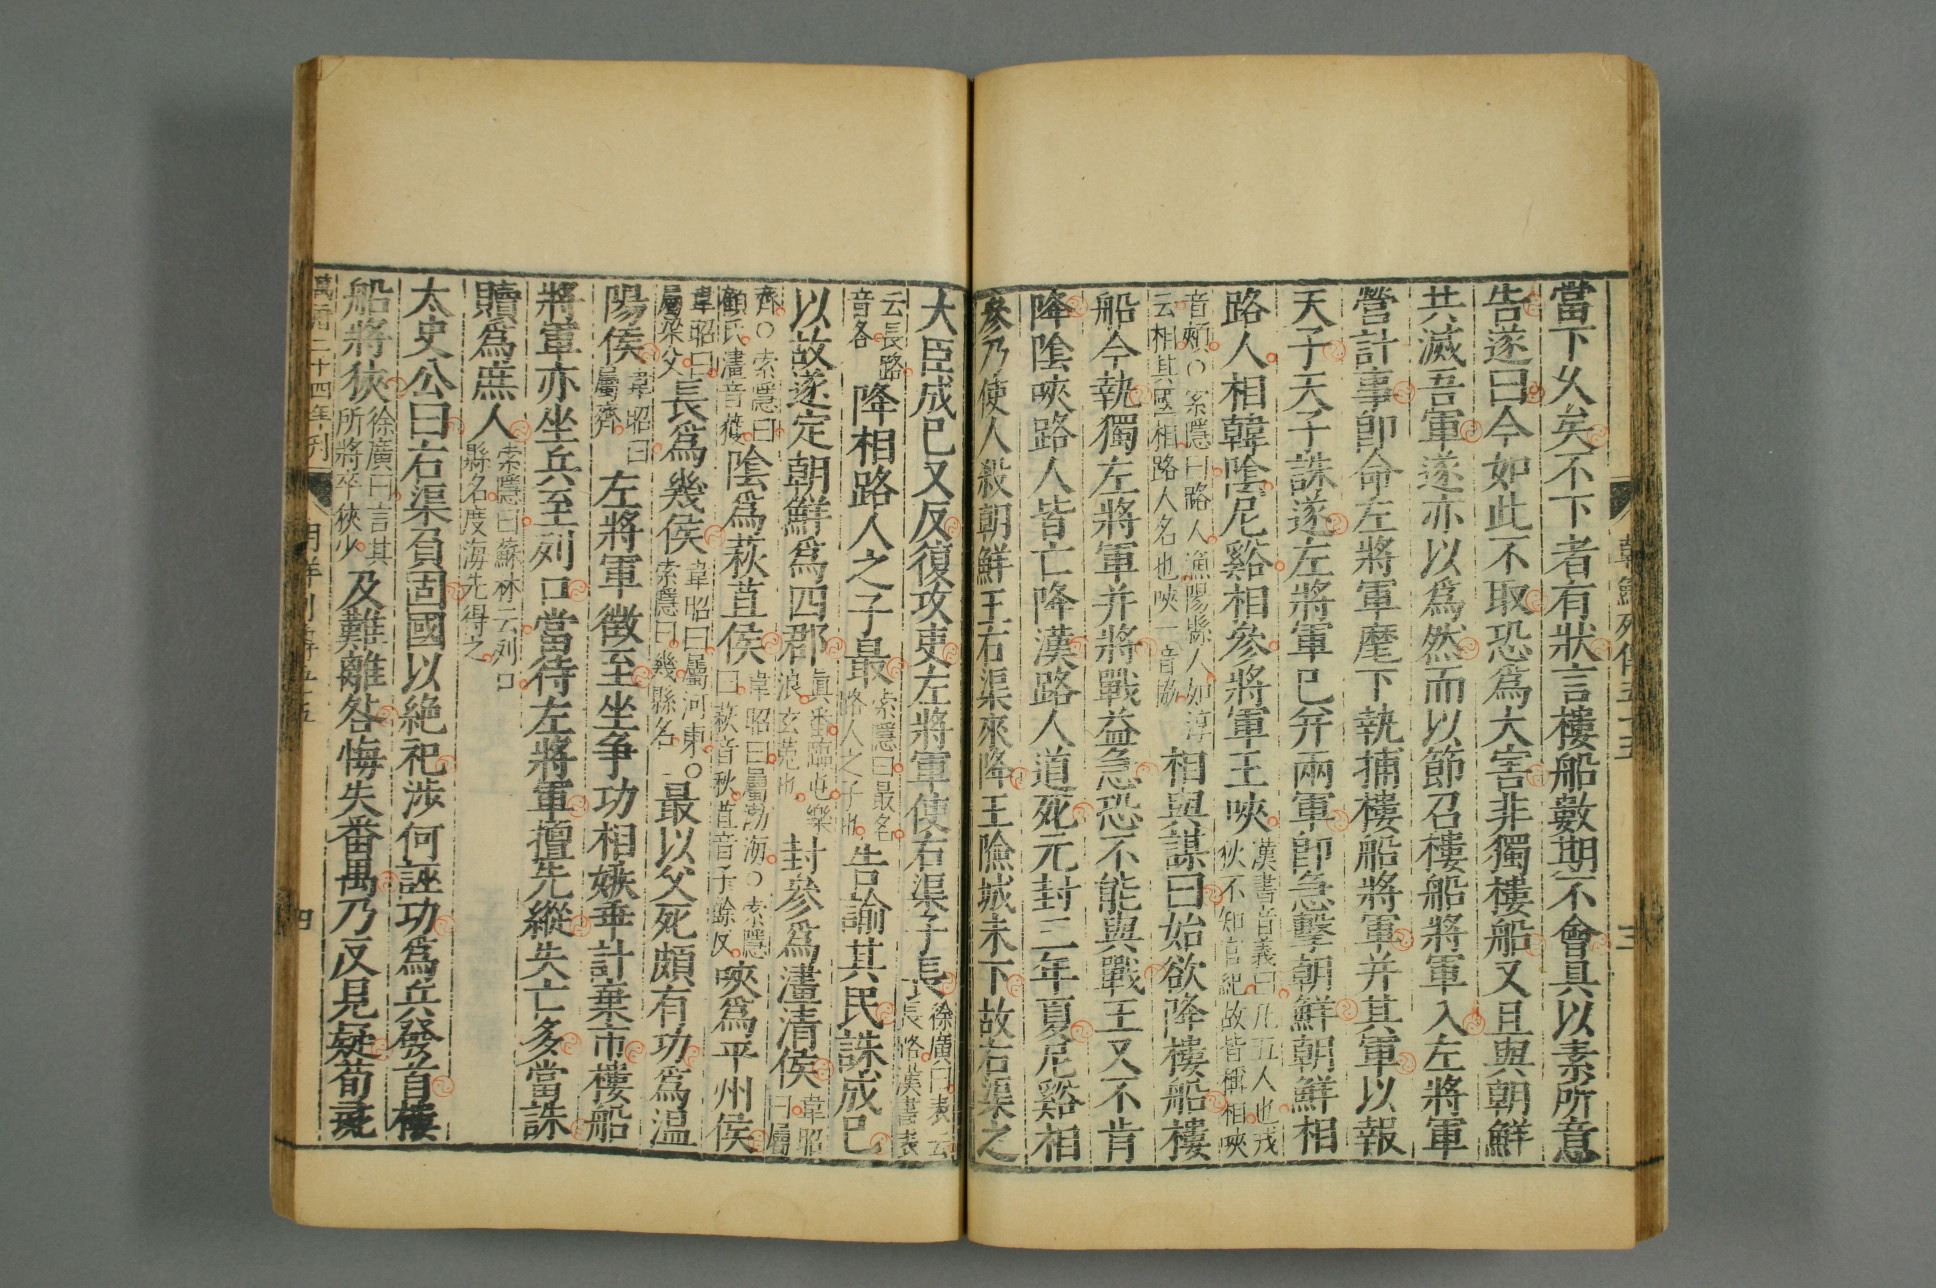 朝鮮列傳五十五
三
當下久矣不下者有狀言樓船數期不會具以素所意
告遂曰今如此不取恐爲大害非獨樓船又且與朝鮮
共滅吾軍遂亦以爲然而以節召樓船將軍入左將軍
營計事卽命左將軍麾下執捕樓船將軍并其軍以報
天子天子誅遂左將軍已幷兩軍卽急擊朝鮮朝鮮相
路人相韓陰尼谿相參將軍王唊漢書音義曰凡五人也戎狄不知官紀故皆稱相唊
音頰○索隱曰路人漁陽縣人如淳云相其國相路人名也唊一音協相與謀曰始欲降樓船樓
船今執獨左將軍并將戰益急恐不能與戰王又不肯
降陰唊路人皆亡降漢路人道死元封三年夏尼谿相
參乃使人殺朝鮮王右渠來降王險城未下故右渠之
大臣成已又反復攻吏左將軍使右渠子長徐廣曰表云長路漢書表
云長路音各降相路人之子最索隱曰最名路人之子也告諭其民誅成已
以故遂定朝鮮爲四郡眞番臨屯樂浪玄菟也封參爲澅清侯韋昭曰屬
齊○索隱曰顧氏澅音獲陰爲萩苴侯韋昭曰屬渤海○索隱曰萩音秋苴音子餘反唊爲平州侯
韋昭曰屬梁父長爲幾侯韋昭曰屬河東○索隱曰幾縣名最以父死頗有功爲温
陽侯韋昭曰屬齊左將軍徵至坐争功相嫉乖計棄市樓船
將軍亦坐兵至列口當待左將軍擅先縱失亡多當誅
贖爲庶人索隱曰蘇林云列口縣名度海先得之
太史公曰右渠負固國以絶祀涉何誣功爲兵發首樓
船將狹徐廣曰言其所將卒狹少及難離咎悔失番禺乃反見疑荀彘
萬曆二十四年刊
朝鮮列傳五十五
四